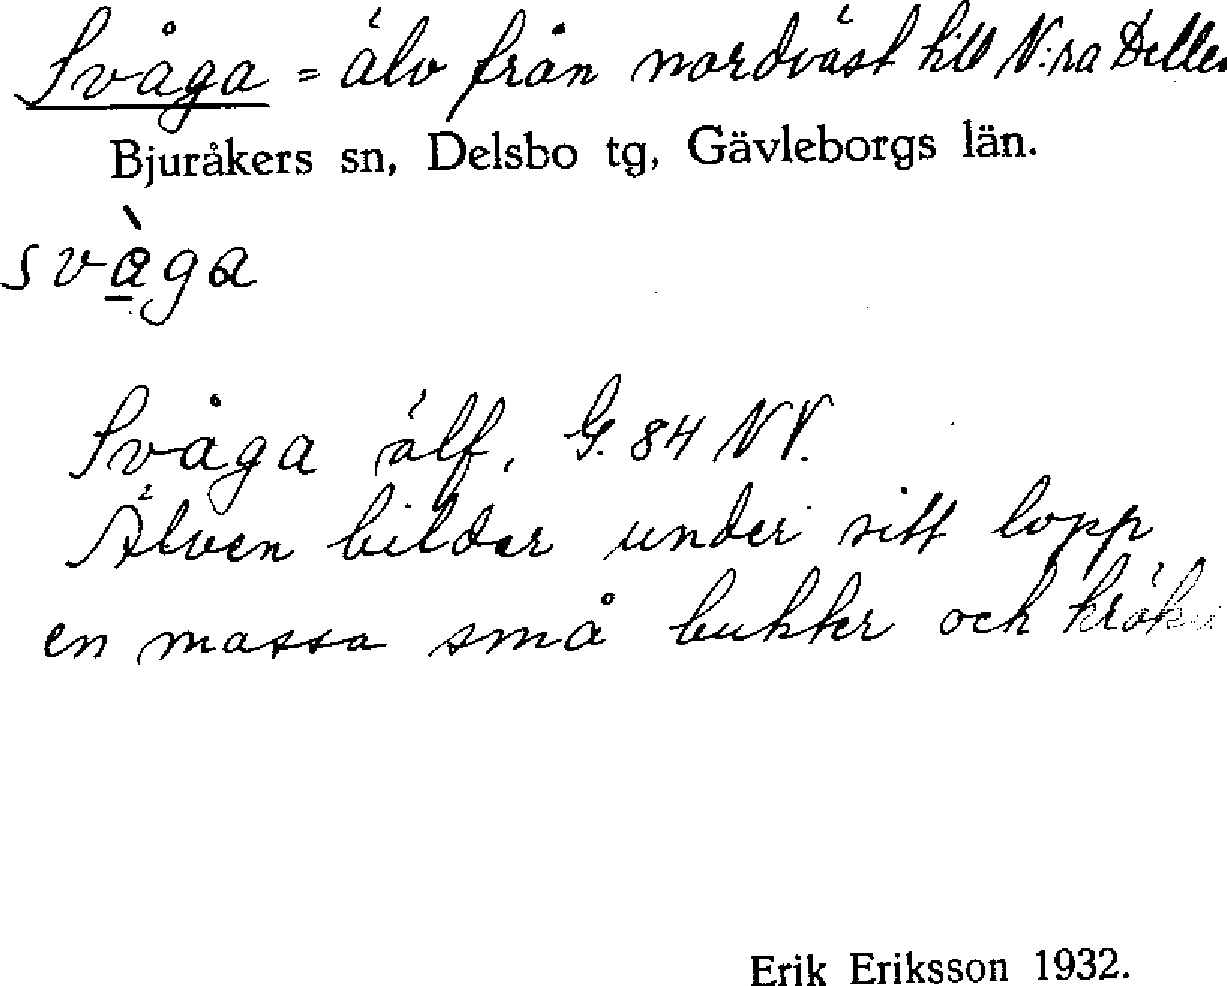 Svåga = älv från nordväst till N:ra Dellen
Bjuråkers sn, Delsbo tg, Gävleborgs län.
svàga
Svåga älf, G. 84 NV.
Älven bildar under sitt lopp
en massa små bukter och
Erik Eriksson 1932.